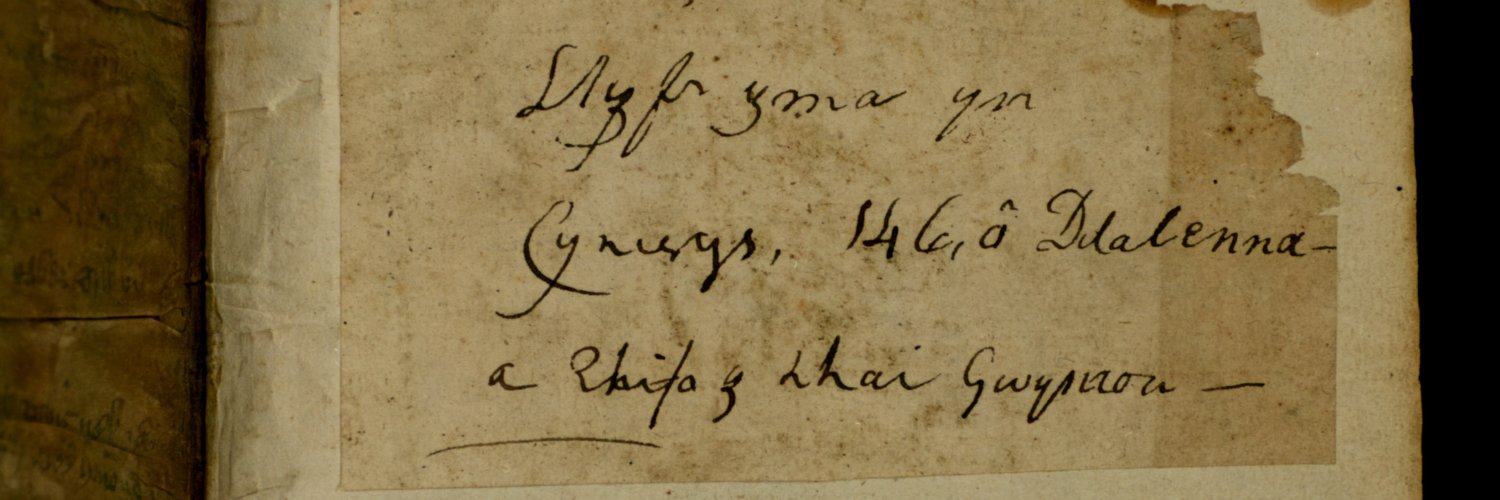 Llyfr yma yn
Cynwys, 146, ô Ddalenna-
a Rhifo y rhai Gwynion —